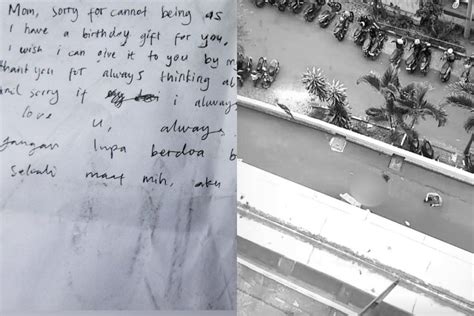 Mom, sorry for cannot being as
I have a birthday gift for you,
I wish i can give it to you by m
thank you for always thinking ab
and sorry if i always
love u, always
jangan lupa berdoa b
sekali maaf mih, aku